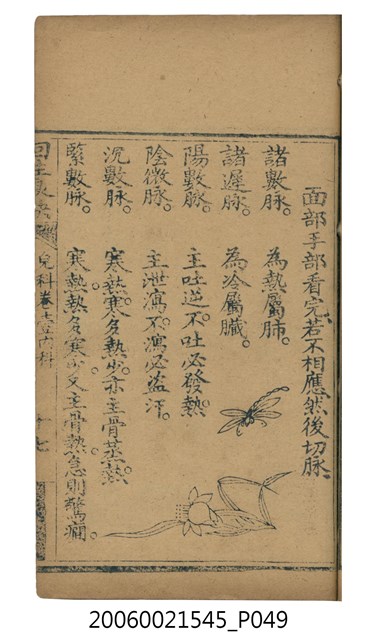 面部手部看完若不相應然後切脉
諸數脉。為熱屬肺。
諸遲脉。為冷屬臟。
陽數脉。主吐逆。不吐必發熱
陰微脉。主泄瀉。不瀉必盗汗。
沉數脉。寒熱。寒多熱少。亦主骨蒸熱
緊數脉。寒熱。熱多寒少。又主骨熱。急則驚癇。
兒科卷壹內科
十七
20060021545_P049